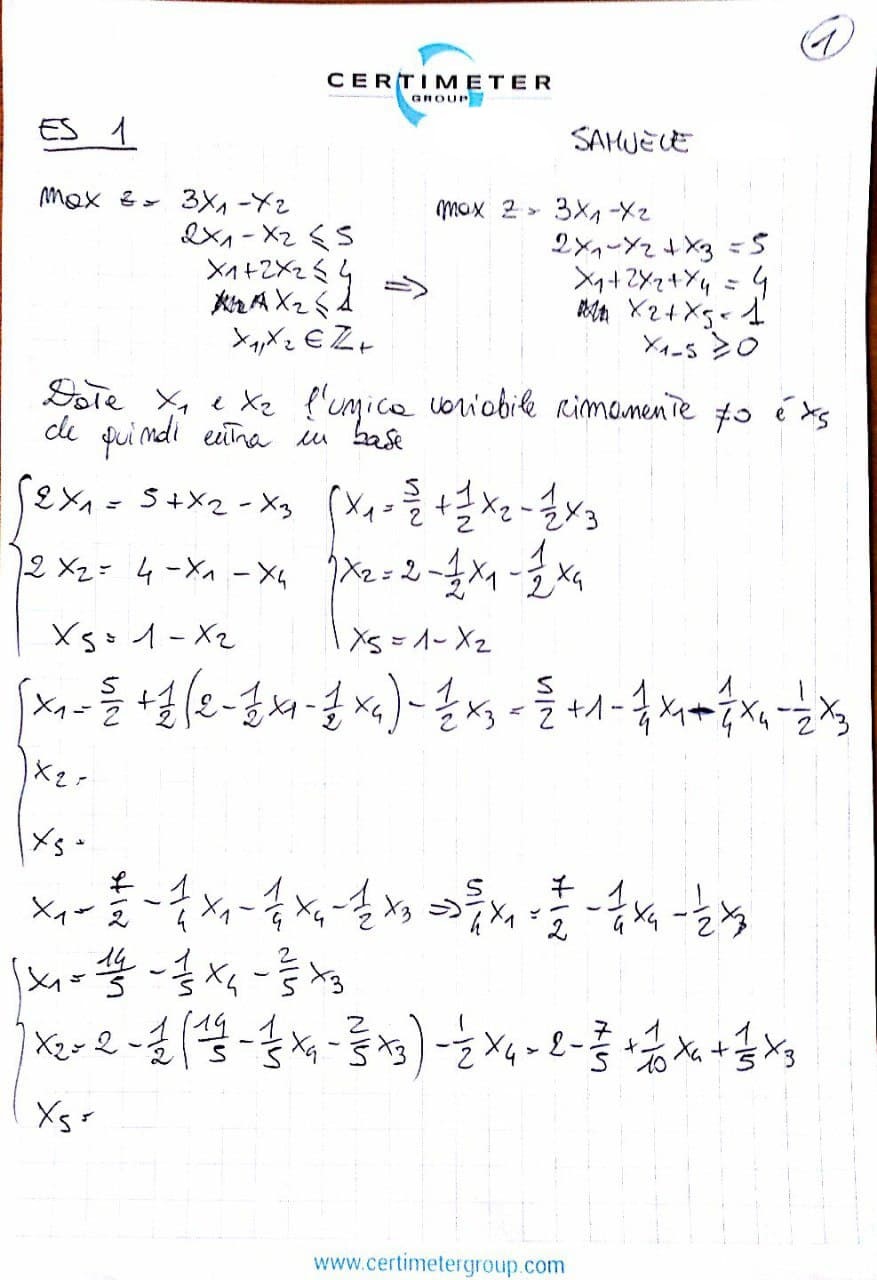 1
CERTIMETER
GROUP
ES 1
SAMUELE
max z = 3x₁ - x₂
2x₁ - x₂ ≤ 5
x₁ + 2x₂ ≤ 4
x₂ ≤ 1
x₁, x₂ ∈ ℤ₊
⇒
max z = 3x₁ - x₂
2x₁ - x₂ + x₃ = 5
x₁ + 2x₂ + x₄ = 4
x₂ + x₅ = 1
x₁₋₅ ≥ 0
Date x₁ e x₂ l'unica variabile rimanente ≠0 é x₅
che quindi entra in base
{ 2x₁ = 5 + x₂ - x₃
2x₂ = 4 - x₁ - x₄
x₅ = 1 - x₂
{ x₁ = 5/2 + 1/2 x₂ - 1/2 x₃
x₂ = 2 - 1/2 x₁ - 1/2 x₄
x₅ = 1 - x₂
{ x₁ = 5/2 + 1/2 (2 - 1/2 x₁ - 1/2 x₄) - 1/2 x₃ = 5/2 + 1 - 1/4 x₁ - 1/4 x₄ - 1/2 x₃
x₂ =
x₅ =
x₁ = 7/2 - 1/4 x₁ - 1/4 x₄ - 1/2 x₃ ⇒ 5/4 x₁ = 7/2 - 1/4 x₄ - 1/2 x₃
{ x₁ = 14/5 - 1/5 x₄ - 2/5 x₃
x₂ = 2 - 1/2 (14/5 - 1/5 x₄ - 2/5 x₃) - 1/2 x₄ = 2 - 7/5 + 1/10 x₄ + 1/5 x₃
x₅ =
www.certimetergroup.com